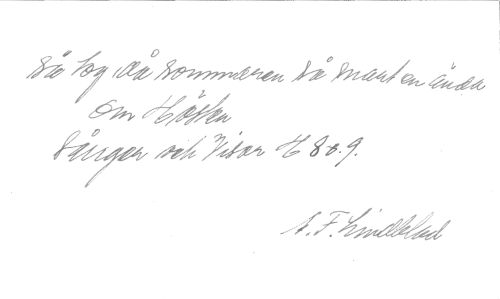 Så tog då sommaren så snart en ända
Om Hösten
Sånger och Visor H 8 o. 9.
A. F. Lindblad